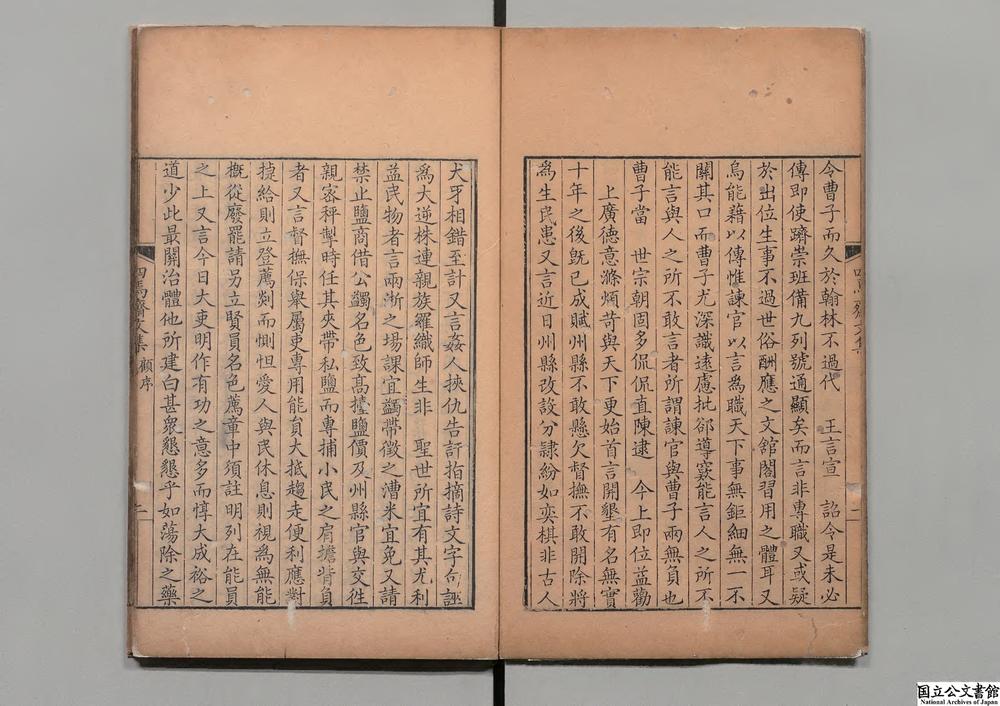 令曹子而久於翰林不過代　王言宣　詔令是未必
傳即使躋崇班備九列號通顯矣而言非專職又或疑
於出位生事不過世俗酬應之文舘閣習用之體耳又
烏能藉以傳惟諫官以言爲職天下事無鉅細無一不
關其口而曹子尤深識遠慮批郤導窾能言人之所不
能言與人之所不敢言者所謂諫官與曹子兩無負也
曹子當　世宗朝固多侃侃直陳逮　今上即位益勸
上廣德意滌煩苛與天下更始首言開墾有名無實
十年之後旣已成賦州縣不敢懸欠督撫不敢開除將
爲生民患又言近日州縣改設分隷紛如奕棋非古人
二
犬牙相錯至計又言姦人挾仇告訐指摘詩文字句誣
爲大逆株連親族羅織師生非　聖世所宜有其尤利
益民物者言兩淅之塲課宜蠲帶徵之漕米宜免又請
禁止鹽商借公蠲名色致髙擡鹽價及州縣官與交徃
親宻秤掣時任其夾帶私鹽而專捕小民之肩擔背負
者又言督撫保舉屬吏專用能員大抵趨走便利應對
捷給則立登薦剡而惻怛愛人與民休息則視爲無能
概從廢罷請另立賢員名色薦章中須註明列在能員
之上又言今日大吏明作有功之意多而惇大成裕之
道少此最關治體他所建白甚衆懇懇乎如蕩除之藥
四焉齋文集 顧序
二
国立公文書館
National Archives of Japan